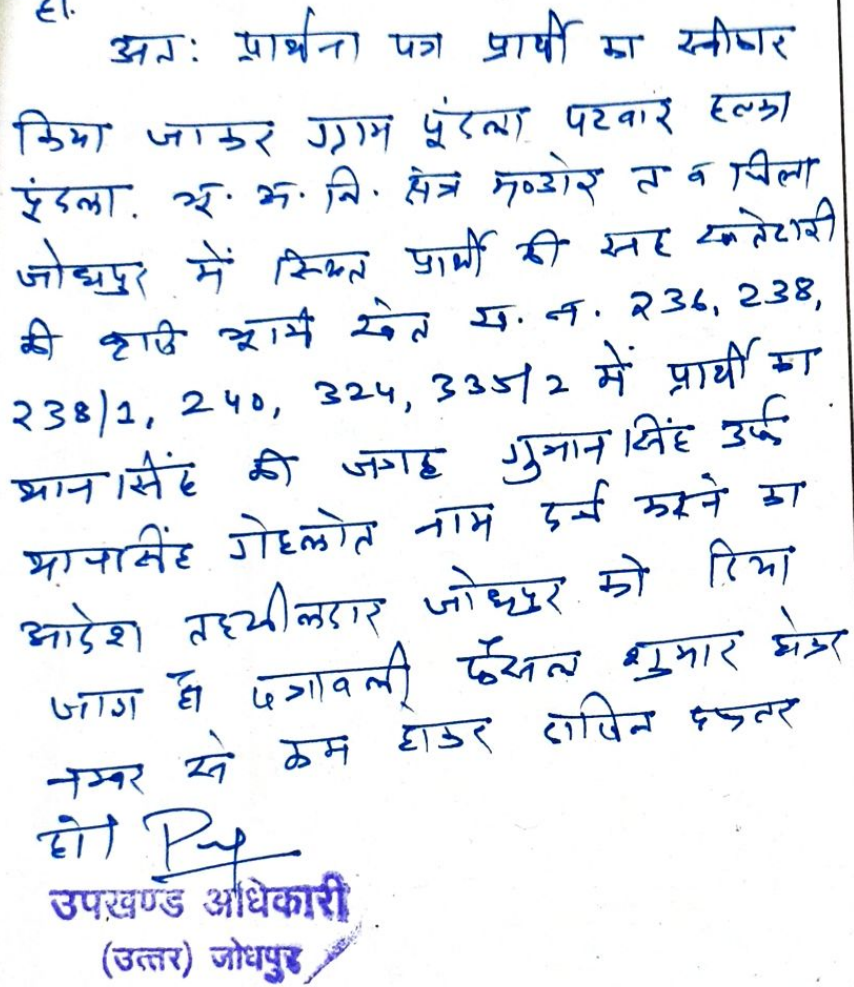 है।
अतः प्रार्थना पत्र प्रार्थी का स्वीकार
किया जाकर ग्राम पूंदला पटवार हल्का
पूंदला. भू. अ. नि. क्षेत्र मण्डोर त व जिला
जोधपुर में स्थित प्रार्थी की सह खातेदारी
की कृषि भूमि खेत ख. न. 236, 238,
238/1, 240, 324, 335/2 में प्रार्थी का
थानसिंह की जगह गुमानसिंह उर्फ
थानसिंह गेहलोत नाम दर्ज करने का
आदेश तहसीलदार जोधपुर को दिया
जाता है पत्रावली फैसल शुमार होकर
नम्बर से कम होकर दाखिल दफ्तर
हो।
उपखण्ड अधिकारी
(उत्तर) जोधपुर